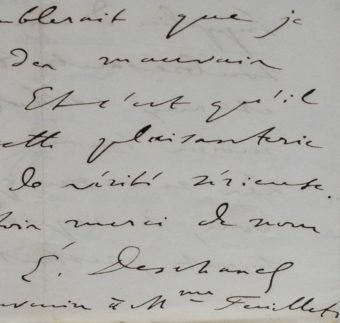 mblerait que je
den mauvain
Et c'est qu'il
ette plaisanterie
de vérité sérieuse.
merci de nom
É. Deschanel
à Mme Feuillet